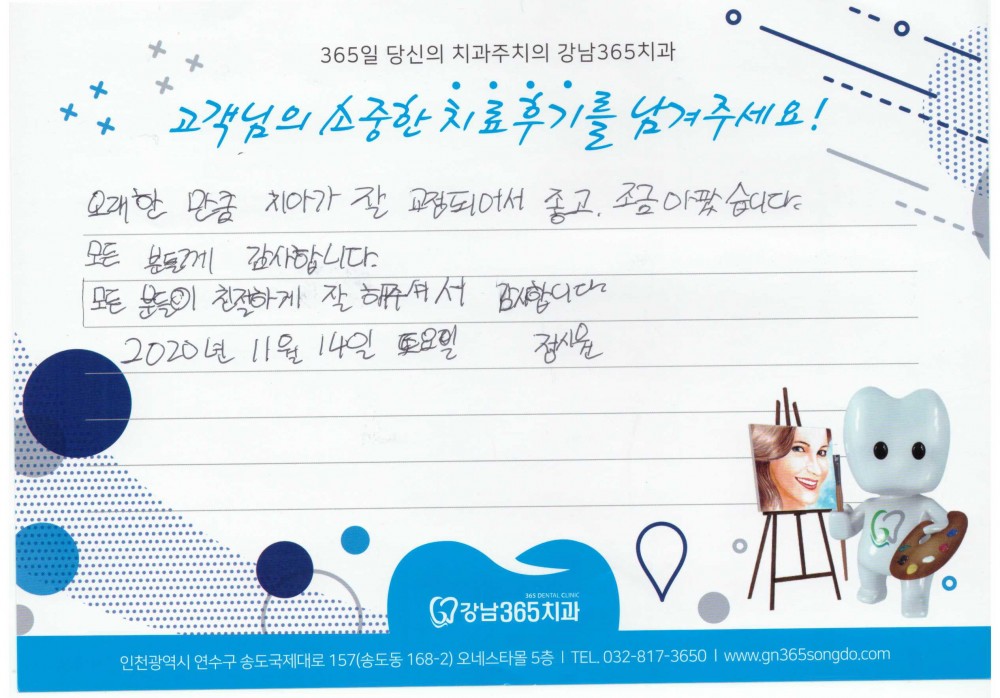 365일 당신의 치과주치의 강남365치과
고객님의 소중한 치료후기를 남겨주세요!
오래한 만큼 치아가 잘 교정되어서 좋고, 조금아팠습니다.
모든 분들께 감사합니다.
모든 분들이 친절하게 잘 해주셔서 감사합니다
2020년 11월 14일 토요일 정시윤
365 DENTAL CLINIC
강남365치과
인천광역시 연수구 송도국제대로 157(송도동 168-2) 오네스타몰 5층 | TEL. 032-817-3650 | www.gn365songdo.com